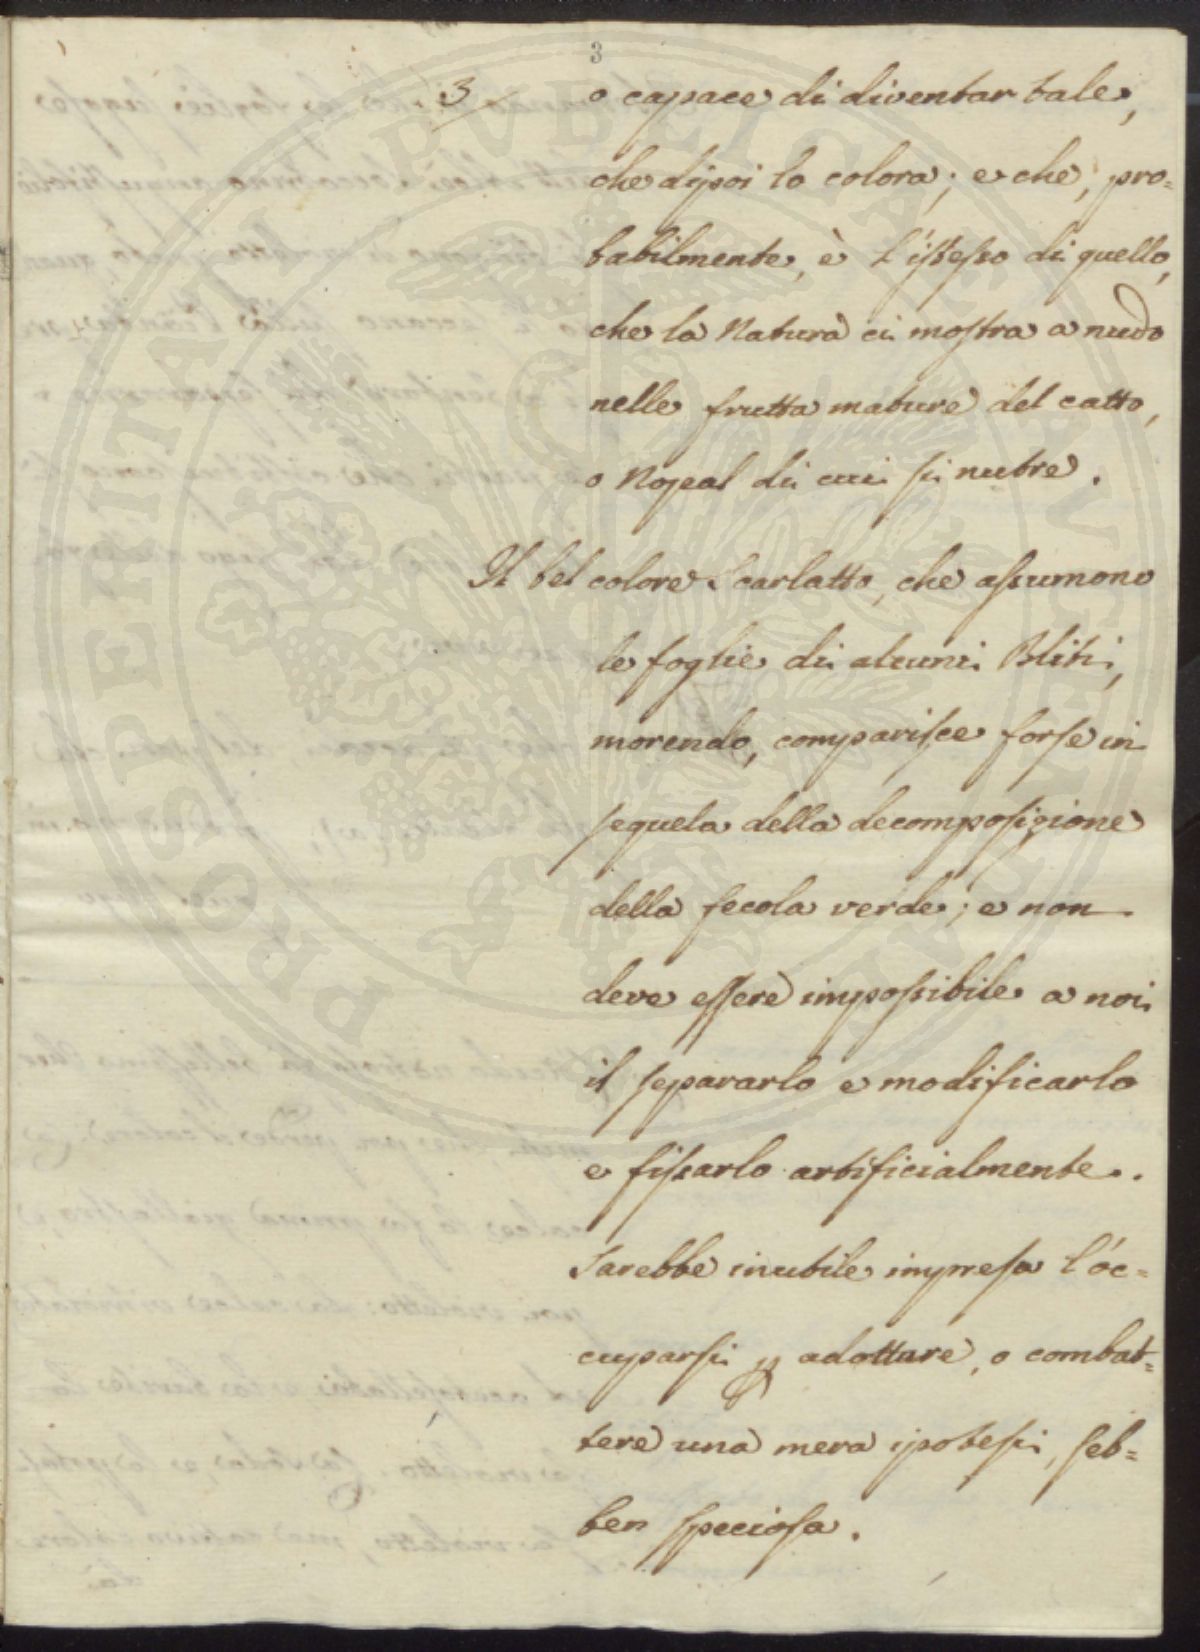 3
3
o capace di diventar tale,
che dipoi lo colora; e che, pro=
babilmente, è l'istesso di quello,
che la Natura ci mostra a nudo
nelle frutta mature del catto,
o Nopal di cui si nutre.
Il bel colore Scarlatto, che assumono
le foglie di alcuni Bliti,
morendo, comparisce forse in
sequela della decomposizione
della fecola verde; e non
deve essere impossibile a noi
il separarlo e modificarlo
e fissarlo artificialmente.
Sarebbe inutile impresa l'oc=
cuparsi p adottare, o combat=
tere una mera ipotesi, seb=
ben speciosa.
PROSPERITATI PVBLICAE AVGENDAE